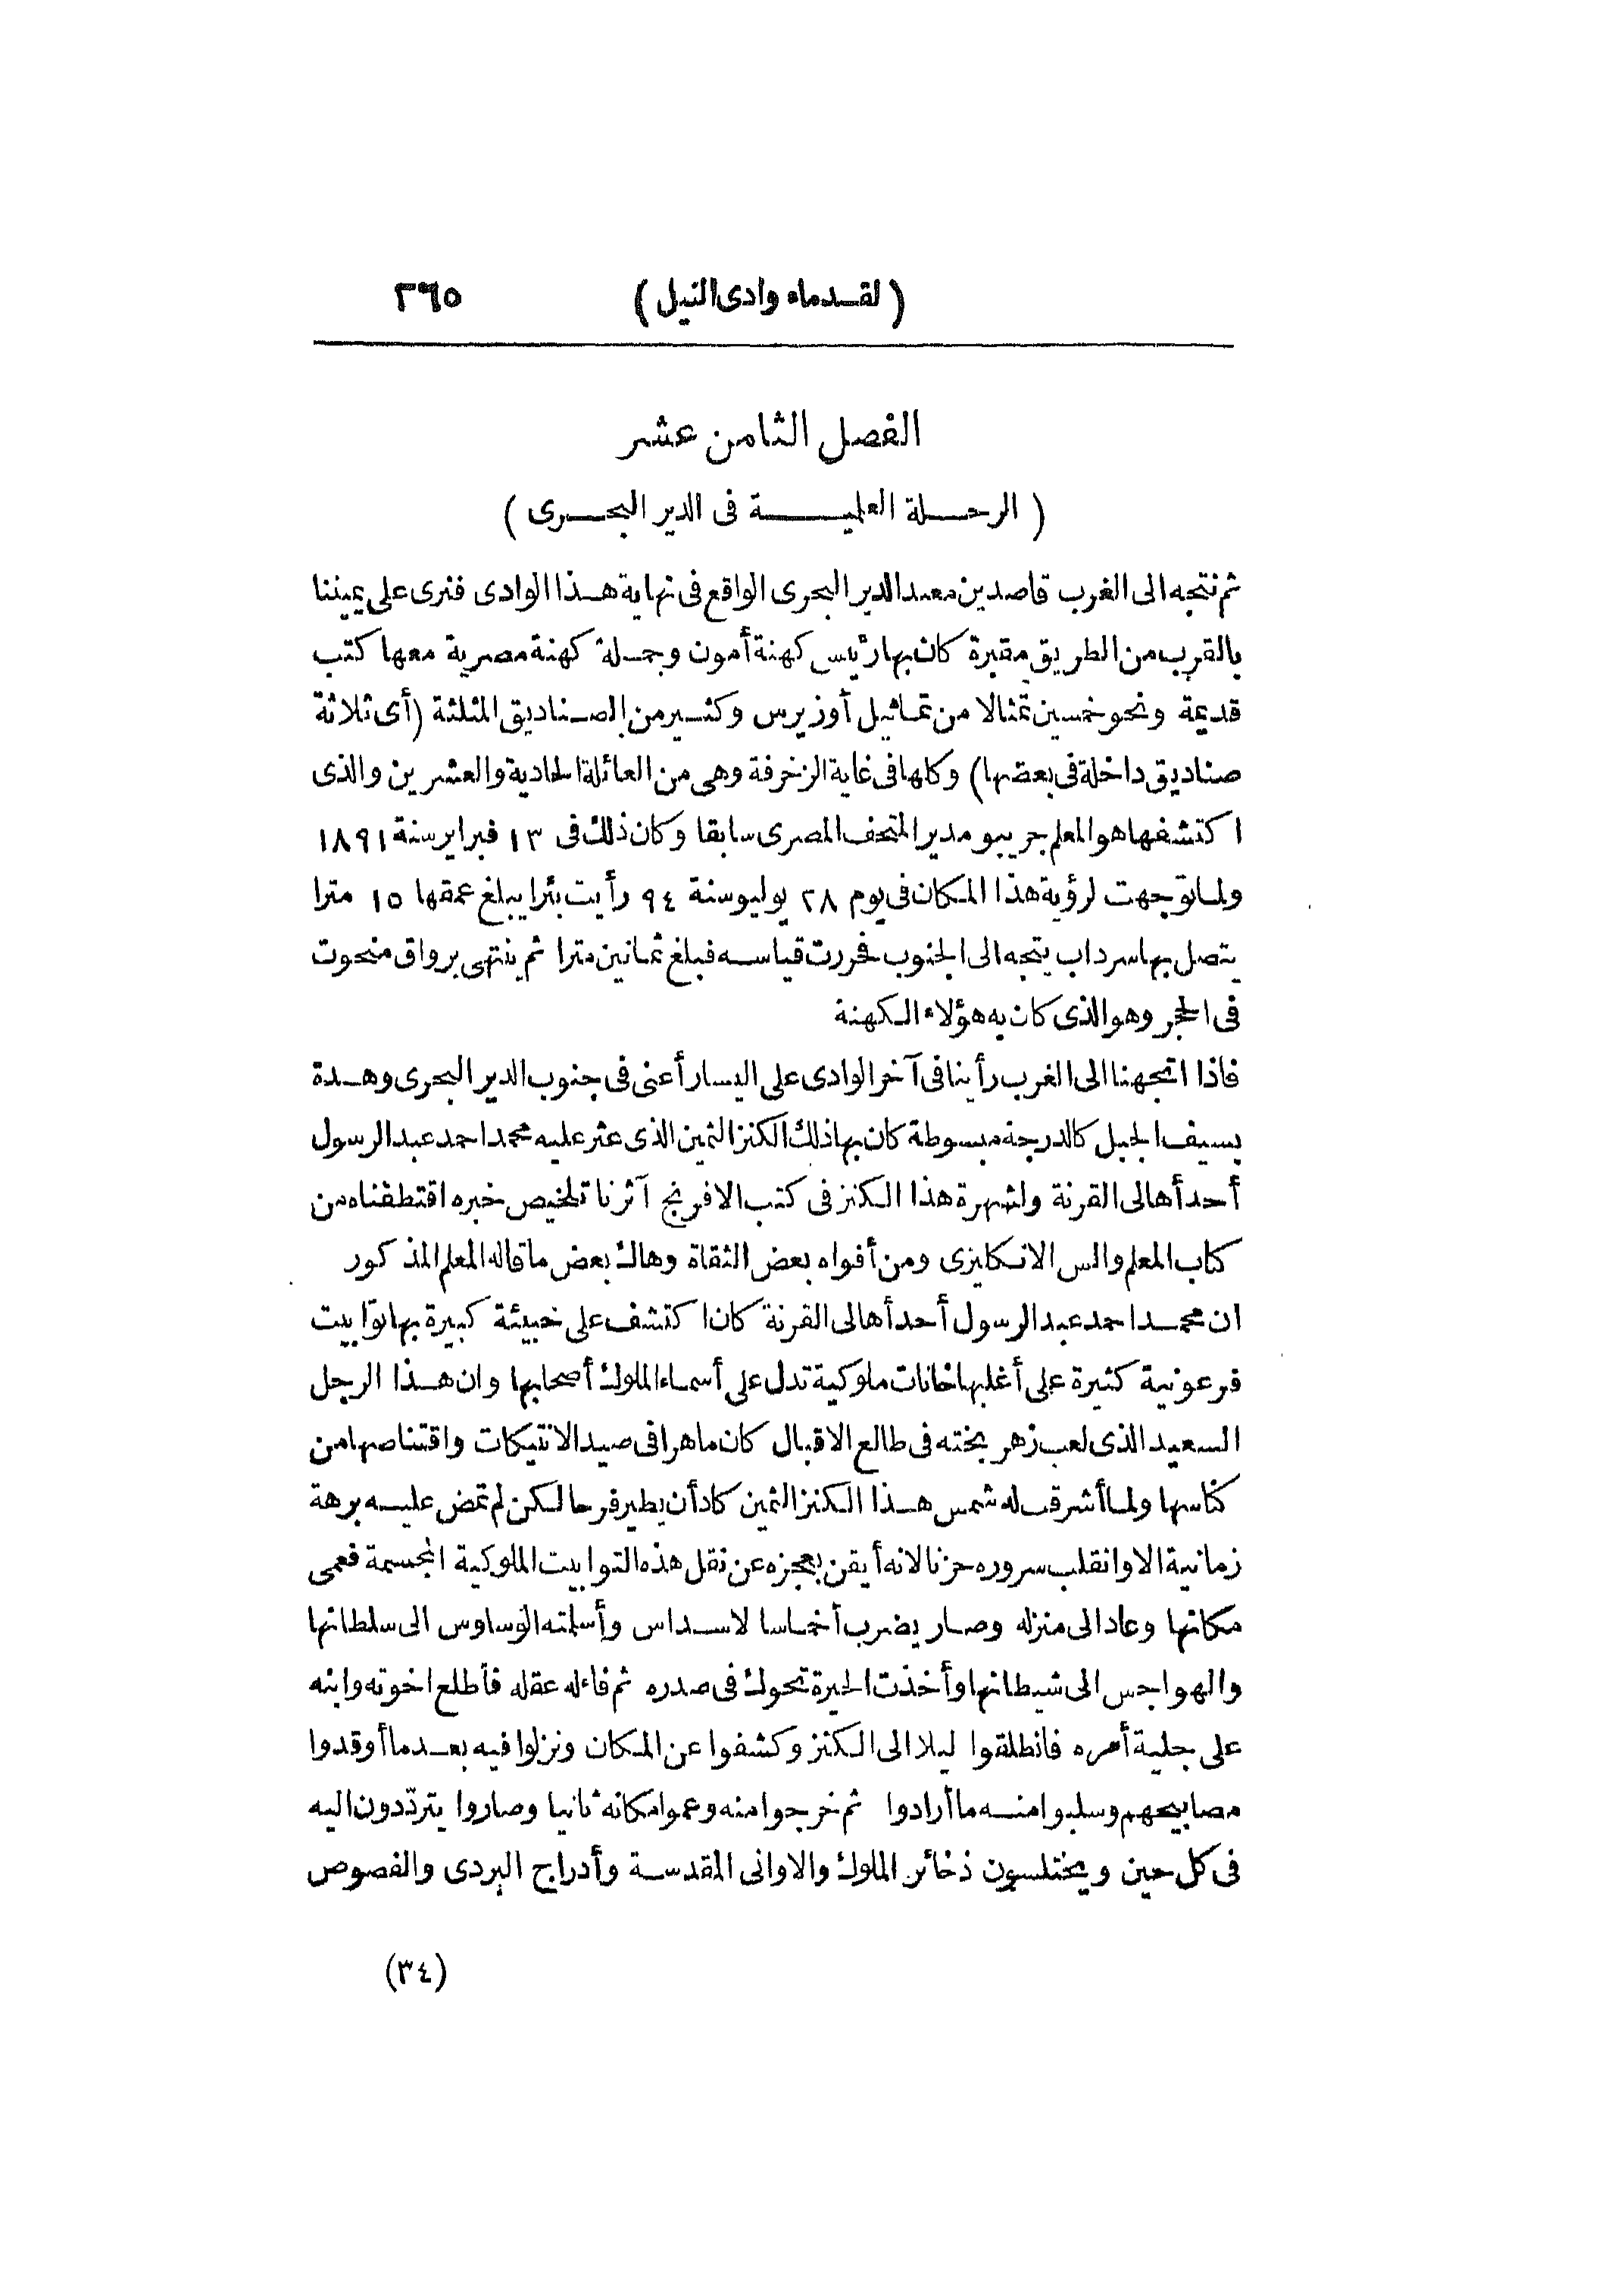 (لقدماء وادى النيل) ٢٦٥
الفصل الثامن عشر
(الرحلة العلمية فى الدير البحرى)
ثم نتجه الى الغرب قاصدين معبد الدير البحرى الواقع فى نهاية هذا الوادى فنرى على يميننا
بالقرب من الطريق مقبرة كان بها رئيس كهنة أمون وجملة كهنة مصرية معها كتب
قديمة ونحو خمسين تمثالا من تماثيل أوزيرس وكثير من الصناديق المثلثة (أى ثلاثة
صناديق داخلة فى بعضها) وكلها فى غاية الزخرفة وهى من العائلة الحادية والعشرين والذى
اكتشفها هو المعلم جريبو مدير المتحف المصرى سابقا وكان ذلك فى ١٣ فبراير سنة ١٨٩١
ولما توجهت لرؤية هذا المكان فى يوم ٢٨ يوليو سنة ٩٤ رأيت بئرا يبلغ عمقها ١٥ مترا
يتصل بها سرداب يتجه الى الجنوب فحررت قياسه فبلغ ثمانين مترا ثم ينتهى برواق منحوت
فى الحجر وهو الذى كان به هؤلاء الكهنة
فاذا اتجهنا الى الغرب رأينا فى آخر الوادى على اليسار أعنى فى جنوب الدير البحرى وهدة
بسيف الجبل كالدرجة مبسوطة كان بها ذلك الكنز الثمين الذى عثر عليه محمد احمد عبد الرسول
أحد أهالى القرنة ولشهرة هذا الكنز فى كتب الافرنج آثرنا تلخيص خبره اقتطفناه من
كتاب المعلم والس الانكليزى ومن أفواه بعض الثقاة وهاك بعض ما قاله المعلم المذكور
ان محمد احمد عبد الرسول أحد أهالى القرنة كان اكتشف على خبيئة كبيرة بها توابيت
فرعونية كثيرة على أغلبها خانات ملوكية تدل على أسماء الملوك أصحابها وان هذا الرجل
السعيد الذى لعب زهر بخته فى طالع الاقبال كان ماهرا فى صيد الانتيكات واقتناصها من
كناسها ولما أشرقت له شمس هذا الكنز الثمين كاد أن يطير فرحا لكن لم تمض عليه برهة
زمانية الا وانقلب سروره حزنا لانه أيقن بعجزه عن نقل هذه التوابيت الملوكية المجسمة فعمى
مكانها وعاد الى منزله وصار يضرب أخماسا لاسداس وأسلمته الوساوس الى سلطانها
والهواجس الى شيطانها وأخذت الحيرة تحوك فى صدره ثم فاء له عقله فأطلع اخوته وابنه
على جلية أمره فانطلقوا ليلا الى الكنز وكشفوا عن المكان ونزلوا فيه بعدما أوقدوا
مصابيحهم وسلبوا منه ما أرادوا ثم خرجوا منه وعموا مكانه ثانيا وصاروا يتردّدون اليه
فى كل حين ويختلسون ذخائر الملوك والاوانى المقدسة وأدراج البردى والفصوص
(٣٤)